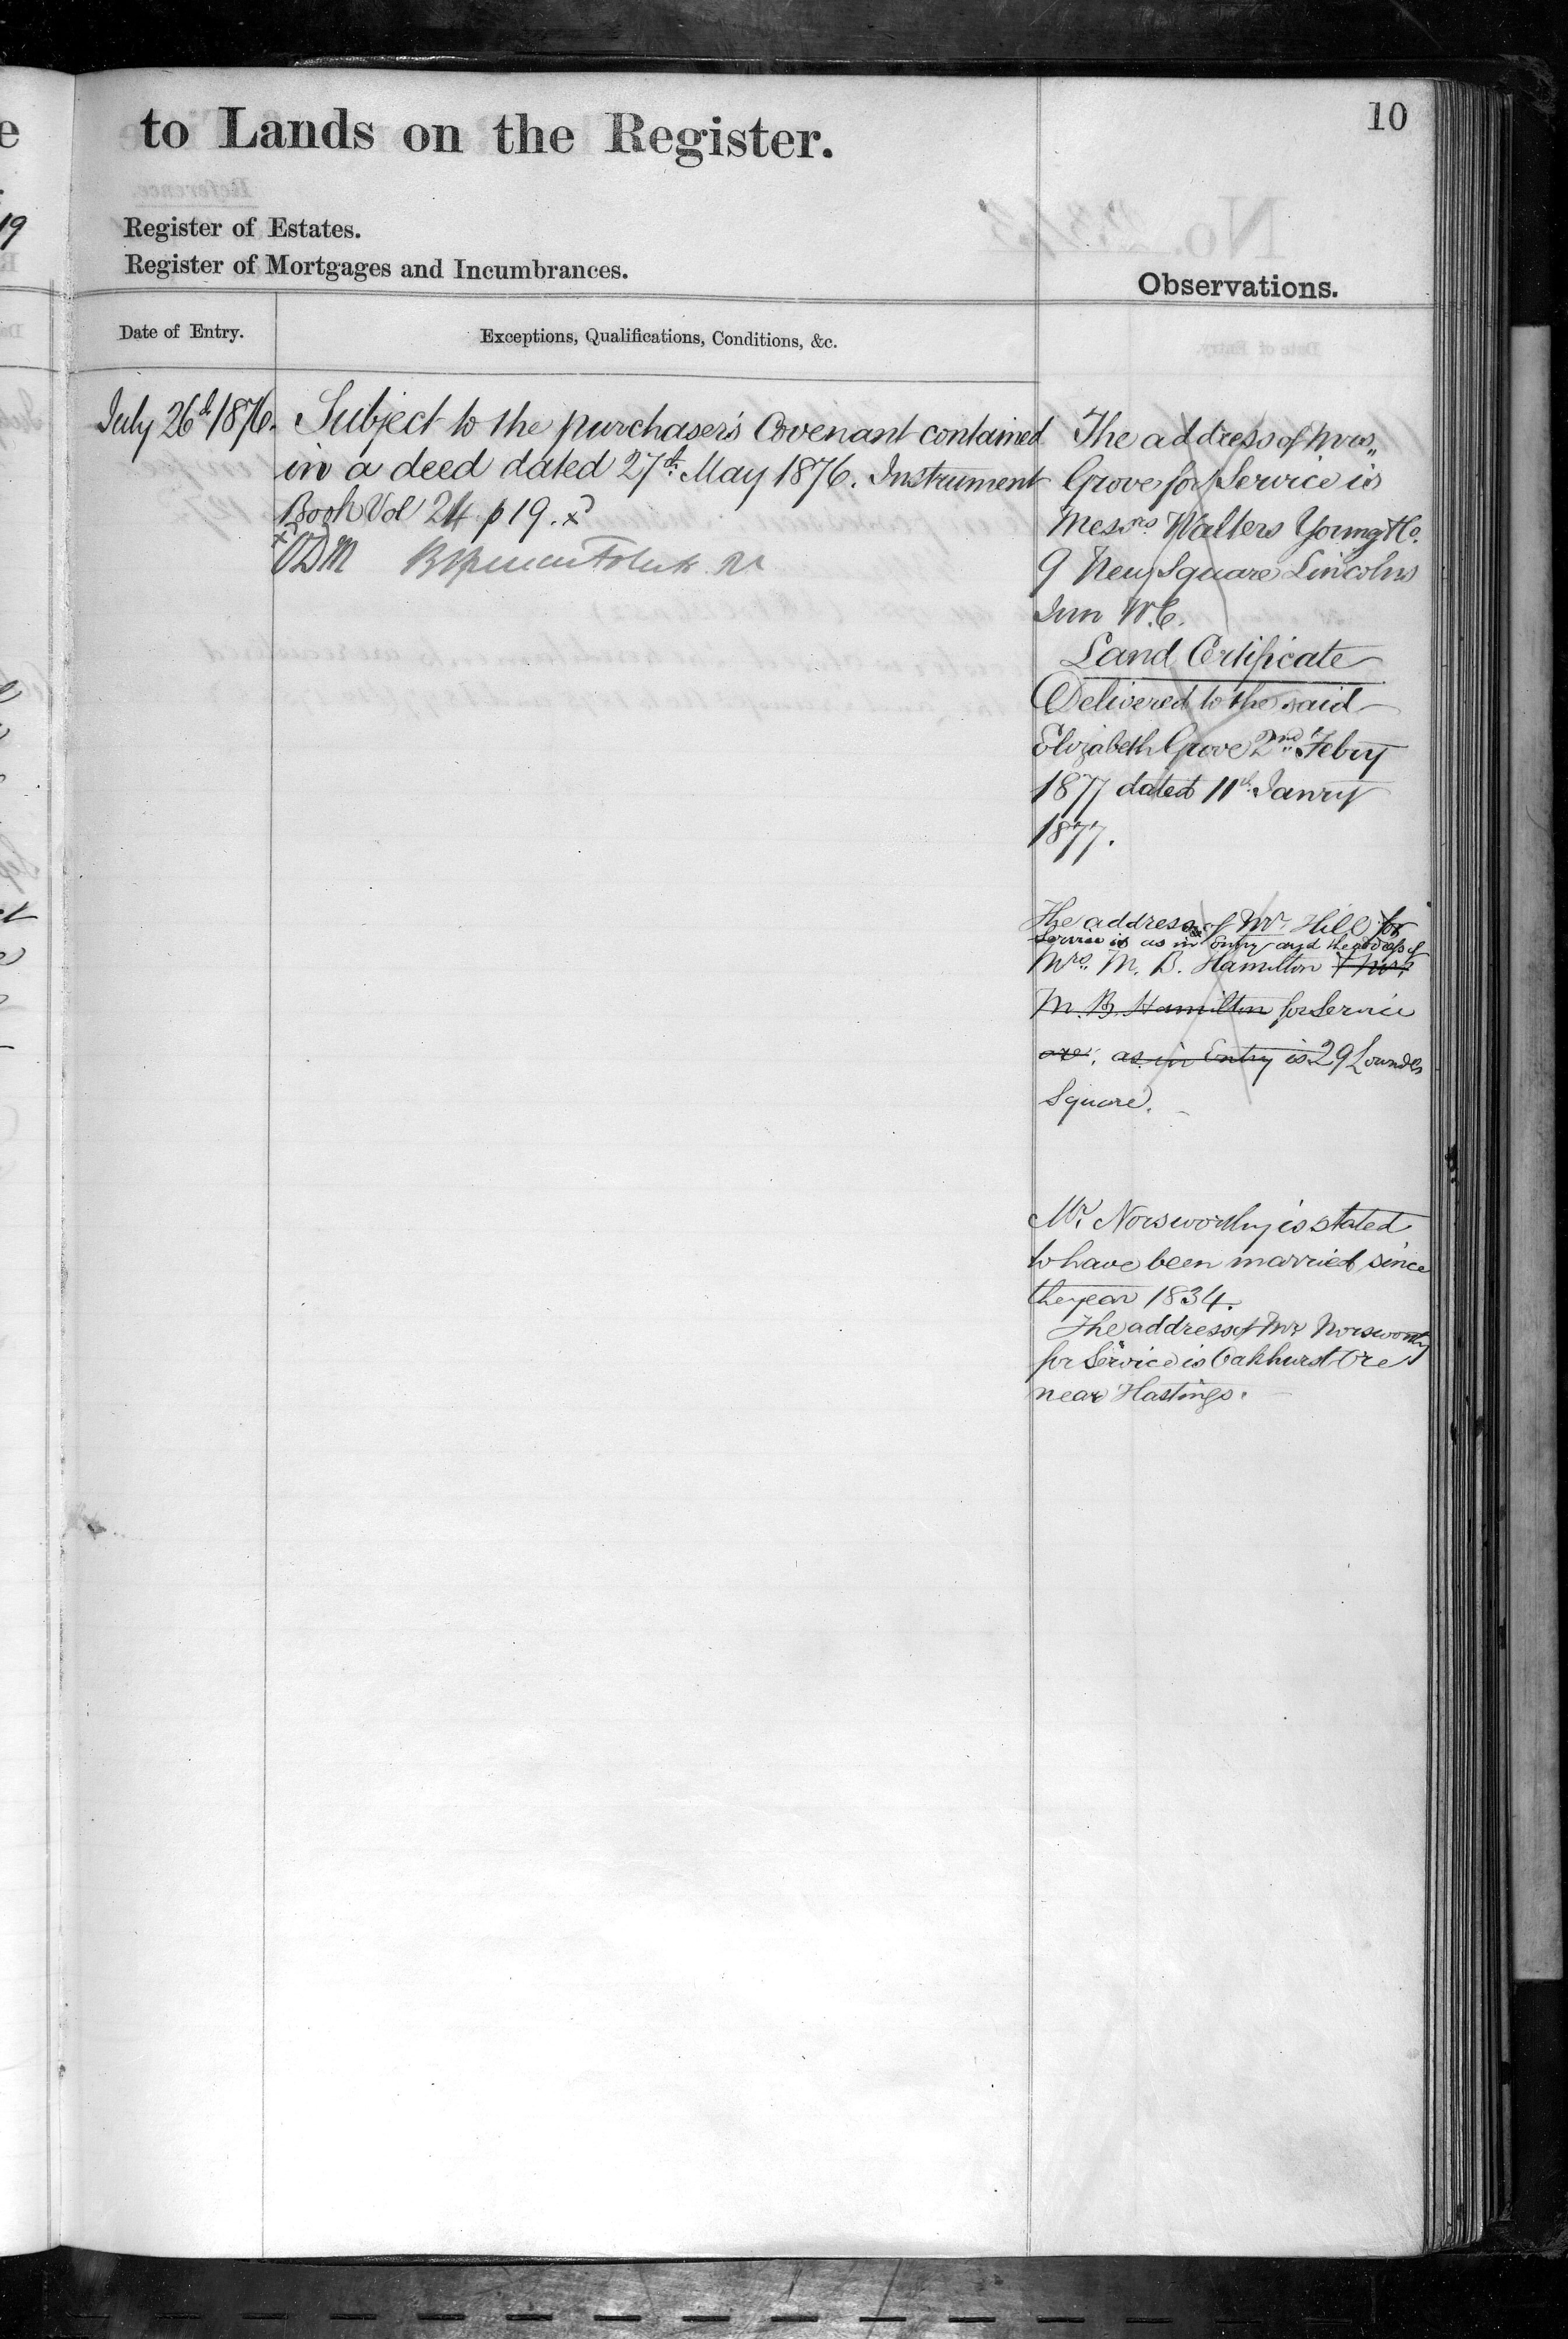 10
to Lands on the Register.
Register of Estates.
Register of Mortgages and Incumbrances.
Observations.
Date of Entry.
Exceptions, Qualifications, Conditions, &c.
July 26th 1876.
Subject to the purchaser's Covenant contained
in a deed dated 27th May 1876. Instrument
Book Vol 24 p 19. x
x
The address of Mrs
Grove for Service is
Messrs Walters Young & Co.
9 New Square Lincolns
Inn W.C.
Land Certificate
Delivered to the said
Elizabeth Grove 2nd Febry
1877 dated 11th Janry
1877.
The address of Mr Hill for
Service is as in Entry and the address of
Mrs M. B. Hamilton & Mrs
M. B. Hamilton for Service
are, as in Entry is 29 Lowndes
Square.
Mr. Norsworthy is stated
to have been married since
the year 1834.
The address of Mr Norsworthy
for Service is Oakhurst Ore
near Hastings.